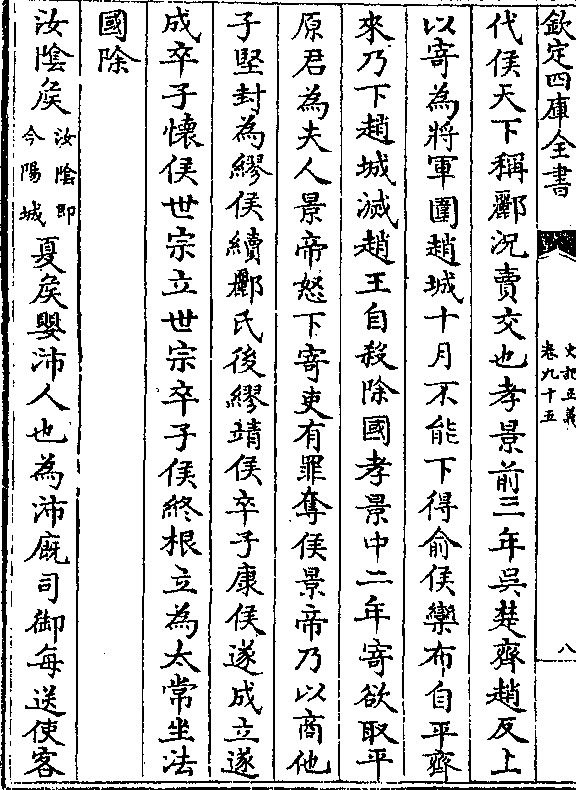 欽定四庫全書
史記正義
卷九十五
八
代侯天下稱酈況賣交也孝景前三年吳楚齊趙反上
以寄為將軍圍趙城十月不能下得俞侯欒布自平齊
來乃下趙城滅趙王自殺除國孝景中二年寄欲取平
原君為夫人景帝怒下寄吏有罪奪侯景帝乃以商他
子堅封為繆侯續酈氏後繆靖侯卒子康侯遂成立遂
成卒子懷侯世宗立世宗卒子侯終根立為太常坐法
國除
汝陰侯汝陰即今陽城夏侯嬰沛人也為沛廐司御每送使客